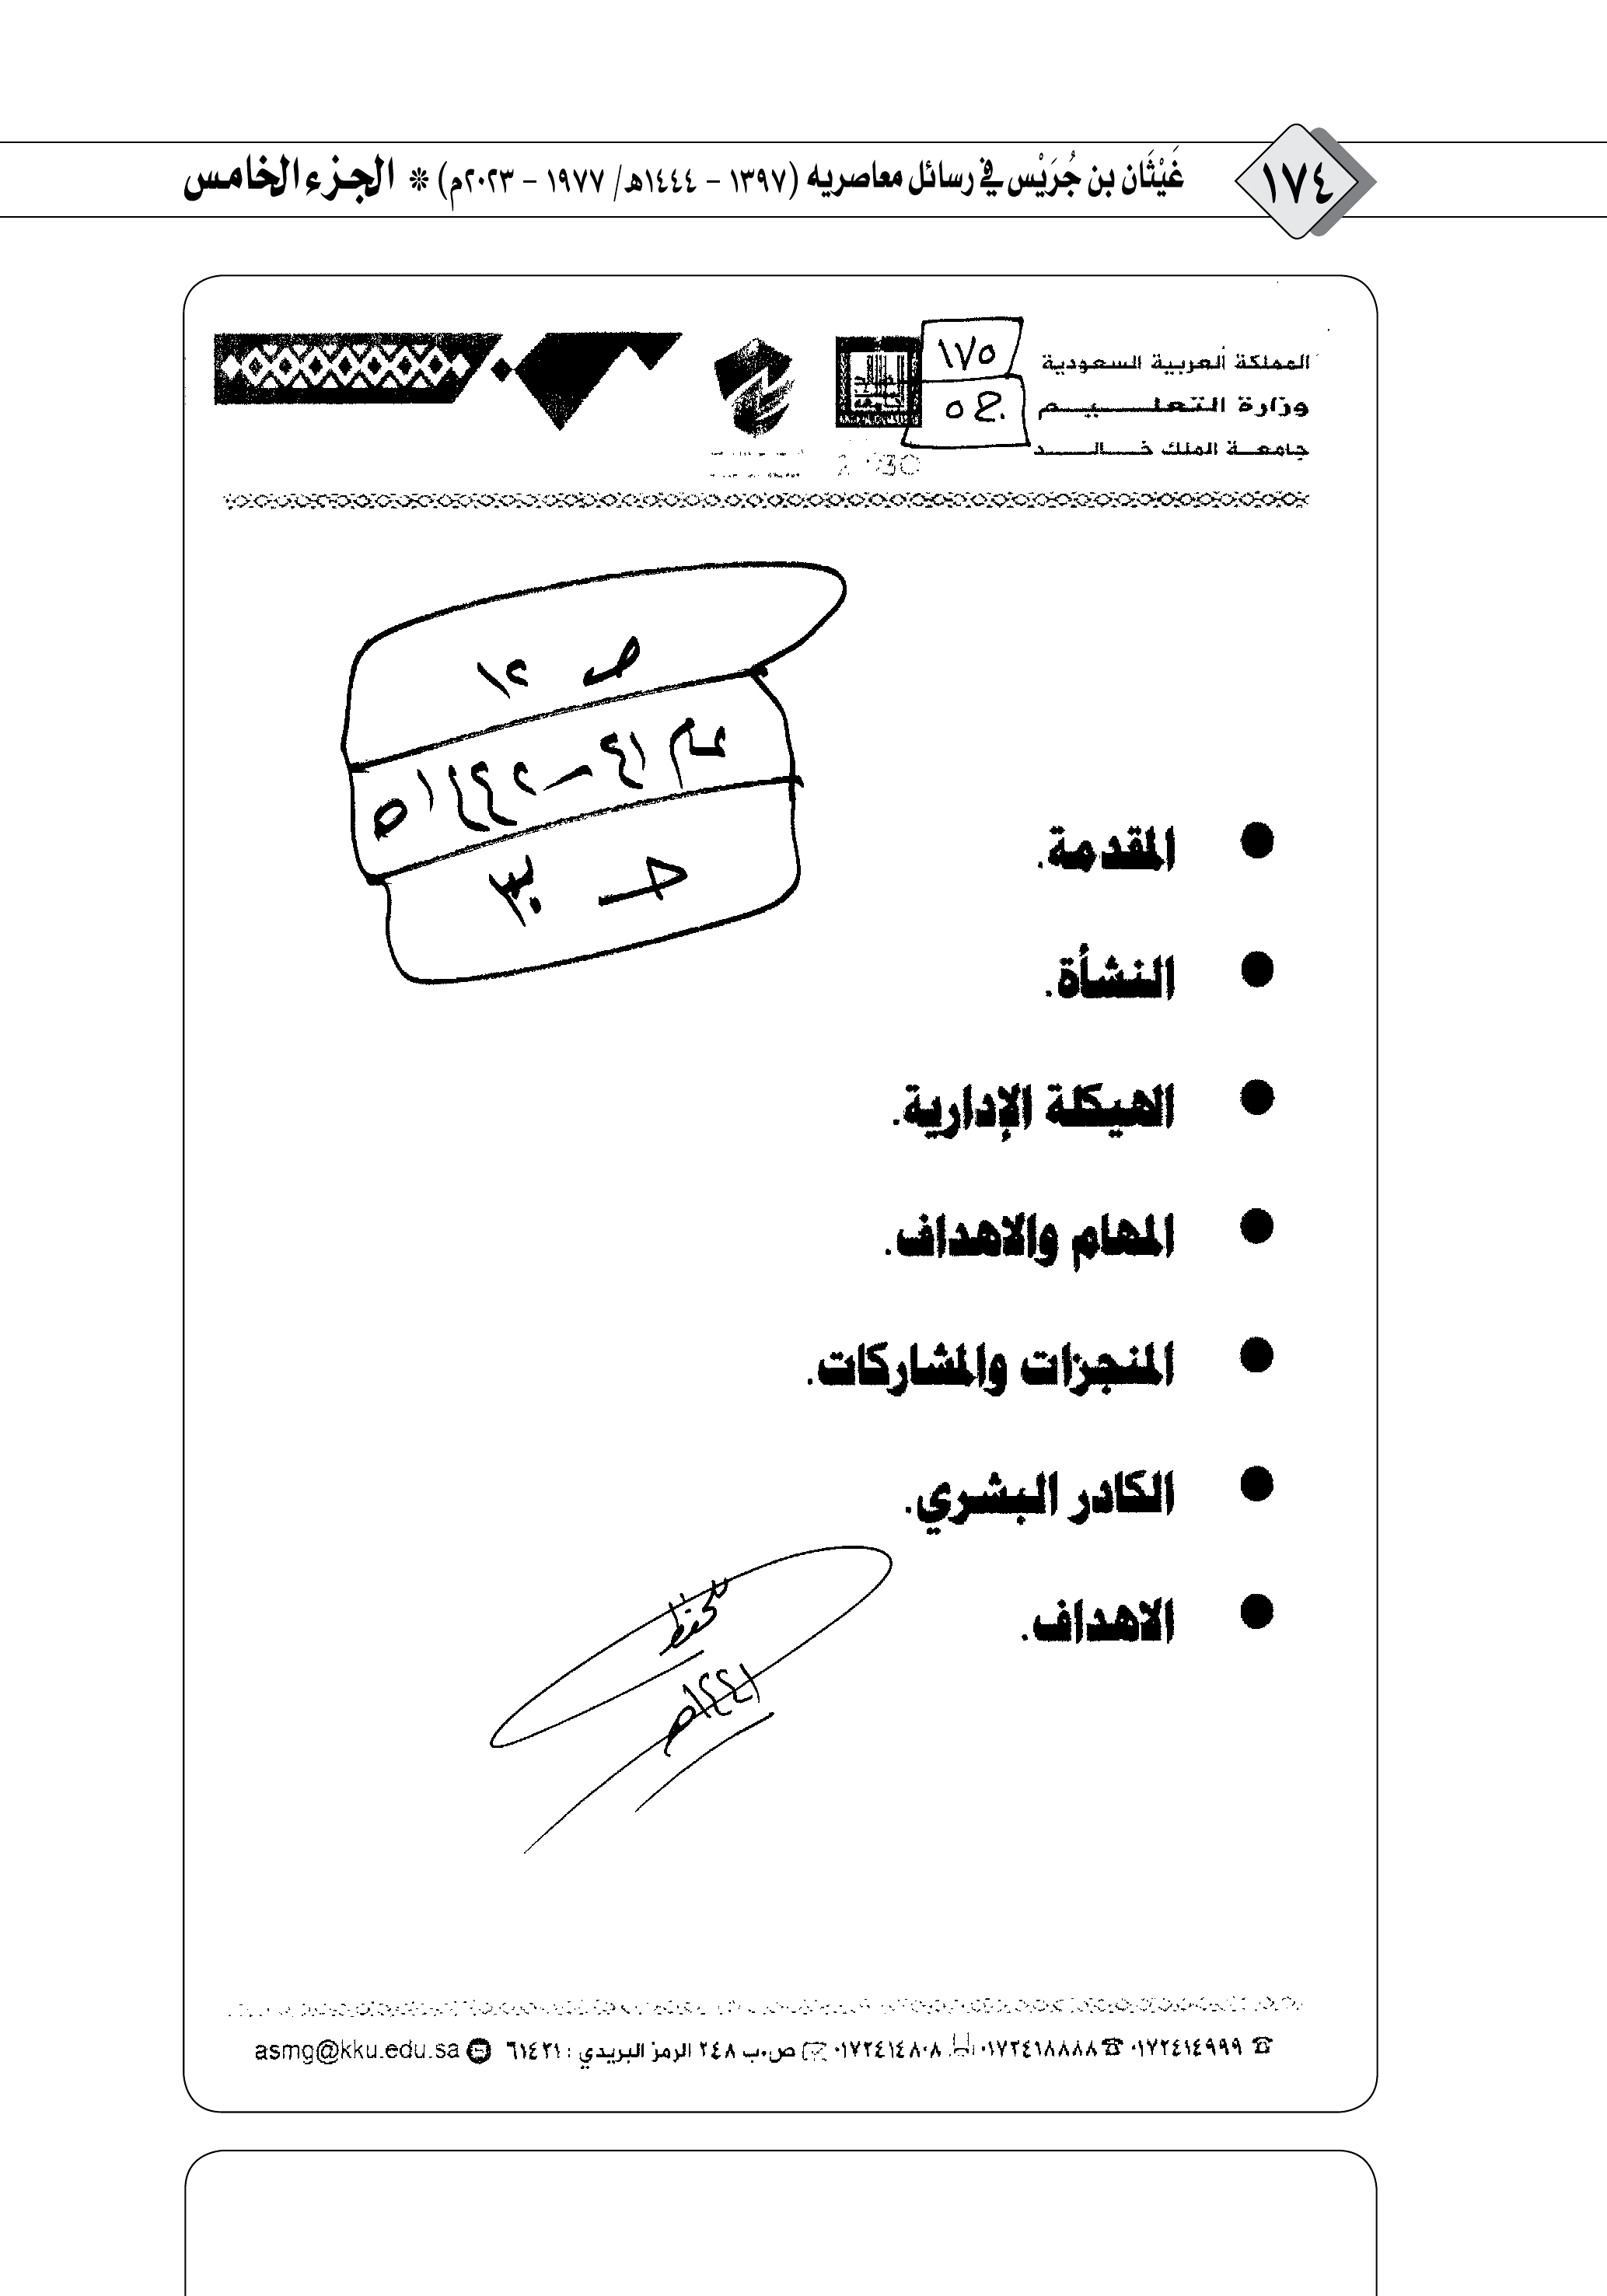 ١٧٤
غَيْثَان بن جُرَيْس في رسائل معاصريه (١٣٩٧ - ١٤٤٤هـ/ ١٩٧٧ - ٢٠٢٣م) ❊ الجزء الخامس
المملكة العربية السعودية
وزارة التعليم
جامعة الملك خالد
١٧٥
ج٥
ص ١٢
ح ٣٠
• المقدمة.
• النشأة.
• الهيكلة الإدارية.
• المهام والاهداف.
• المنجزات والمشاركات.
• الكادر البشري.
• الاهداف.
للحفظ
١٤٤٢هـ
٠١٧٢٤١٤٩٩٩ ٠١٧٢٤١٨٨٨٨ ٠١٧٢٤١٤٨٠٨ ص.ب ٢٤٨ الرمز البريدي : ٦١٤٢١ asmg@kku.edu.sa